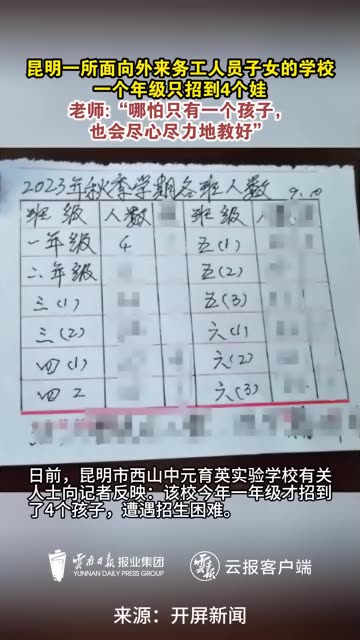 昆明一所面向外来务工人员子女的学校
一个年级只招到4个娃
老师:“哪怕只有一个孩子,
也会尽心尽力地教好”
2023年秋季学期各班人数 9.10
班级 人数 班级
一年级 4 五(1)
二年级 五(2)
三(1) 五(3)
三(2) 六(1)
四(1) 六(2)
四2 六(3)
日前，昆明市西山中元育英实验学校有关
人士向记者反映：该校今年一年级才招到
了4个孩子，遭遇招生困难。
云南日报报业集团 云报客户端
YUNNAN DAILY PRESS GROUP
来源：开屏新闻